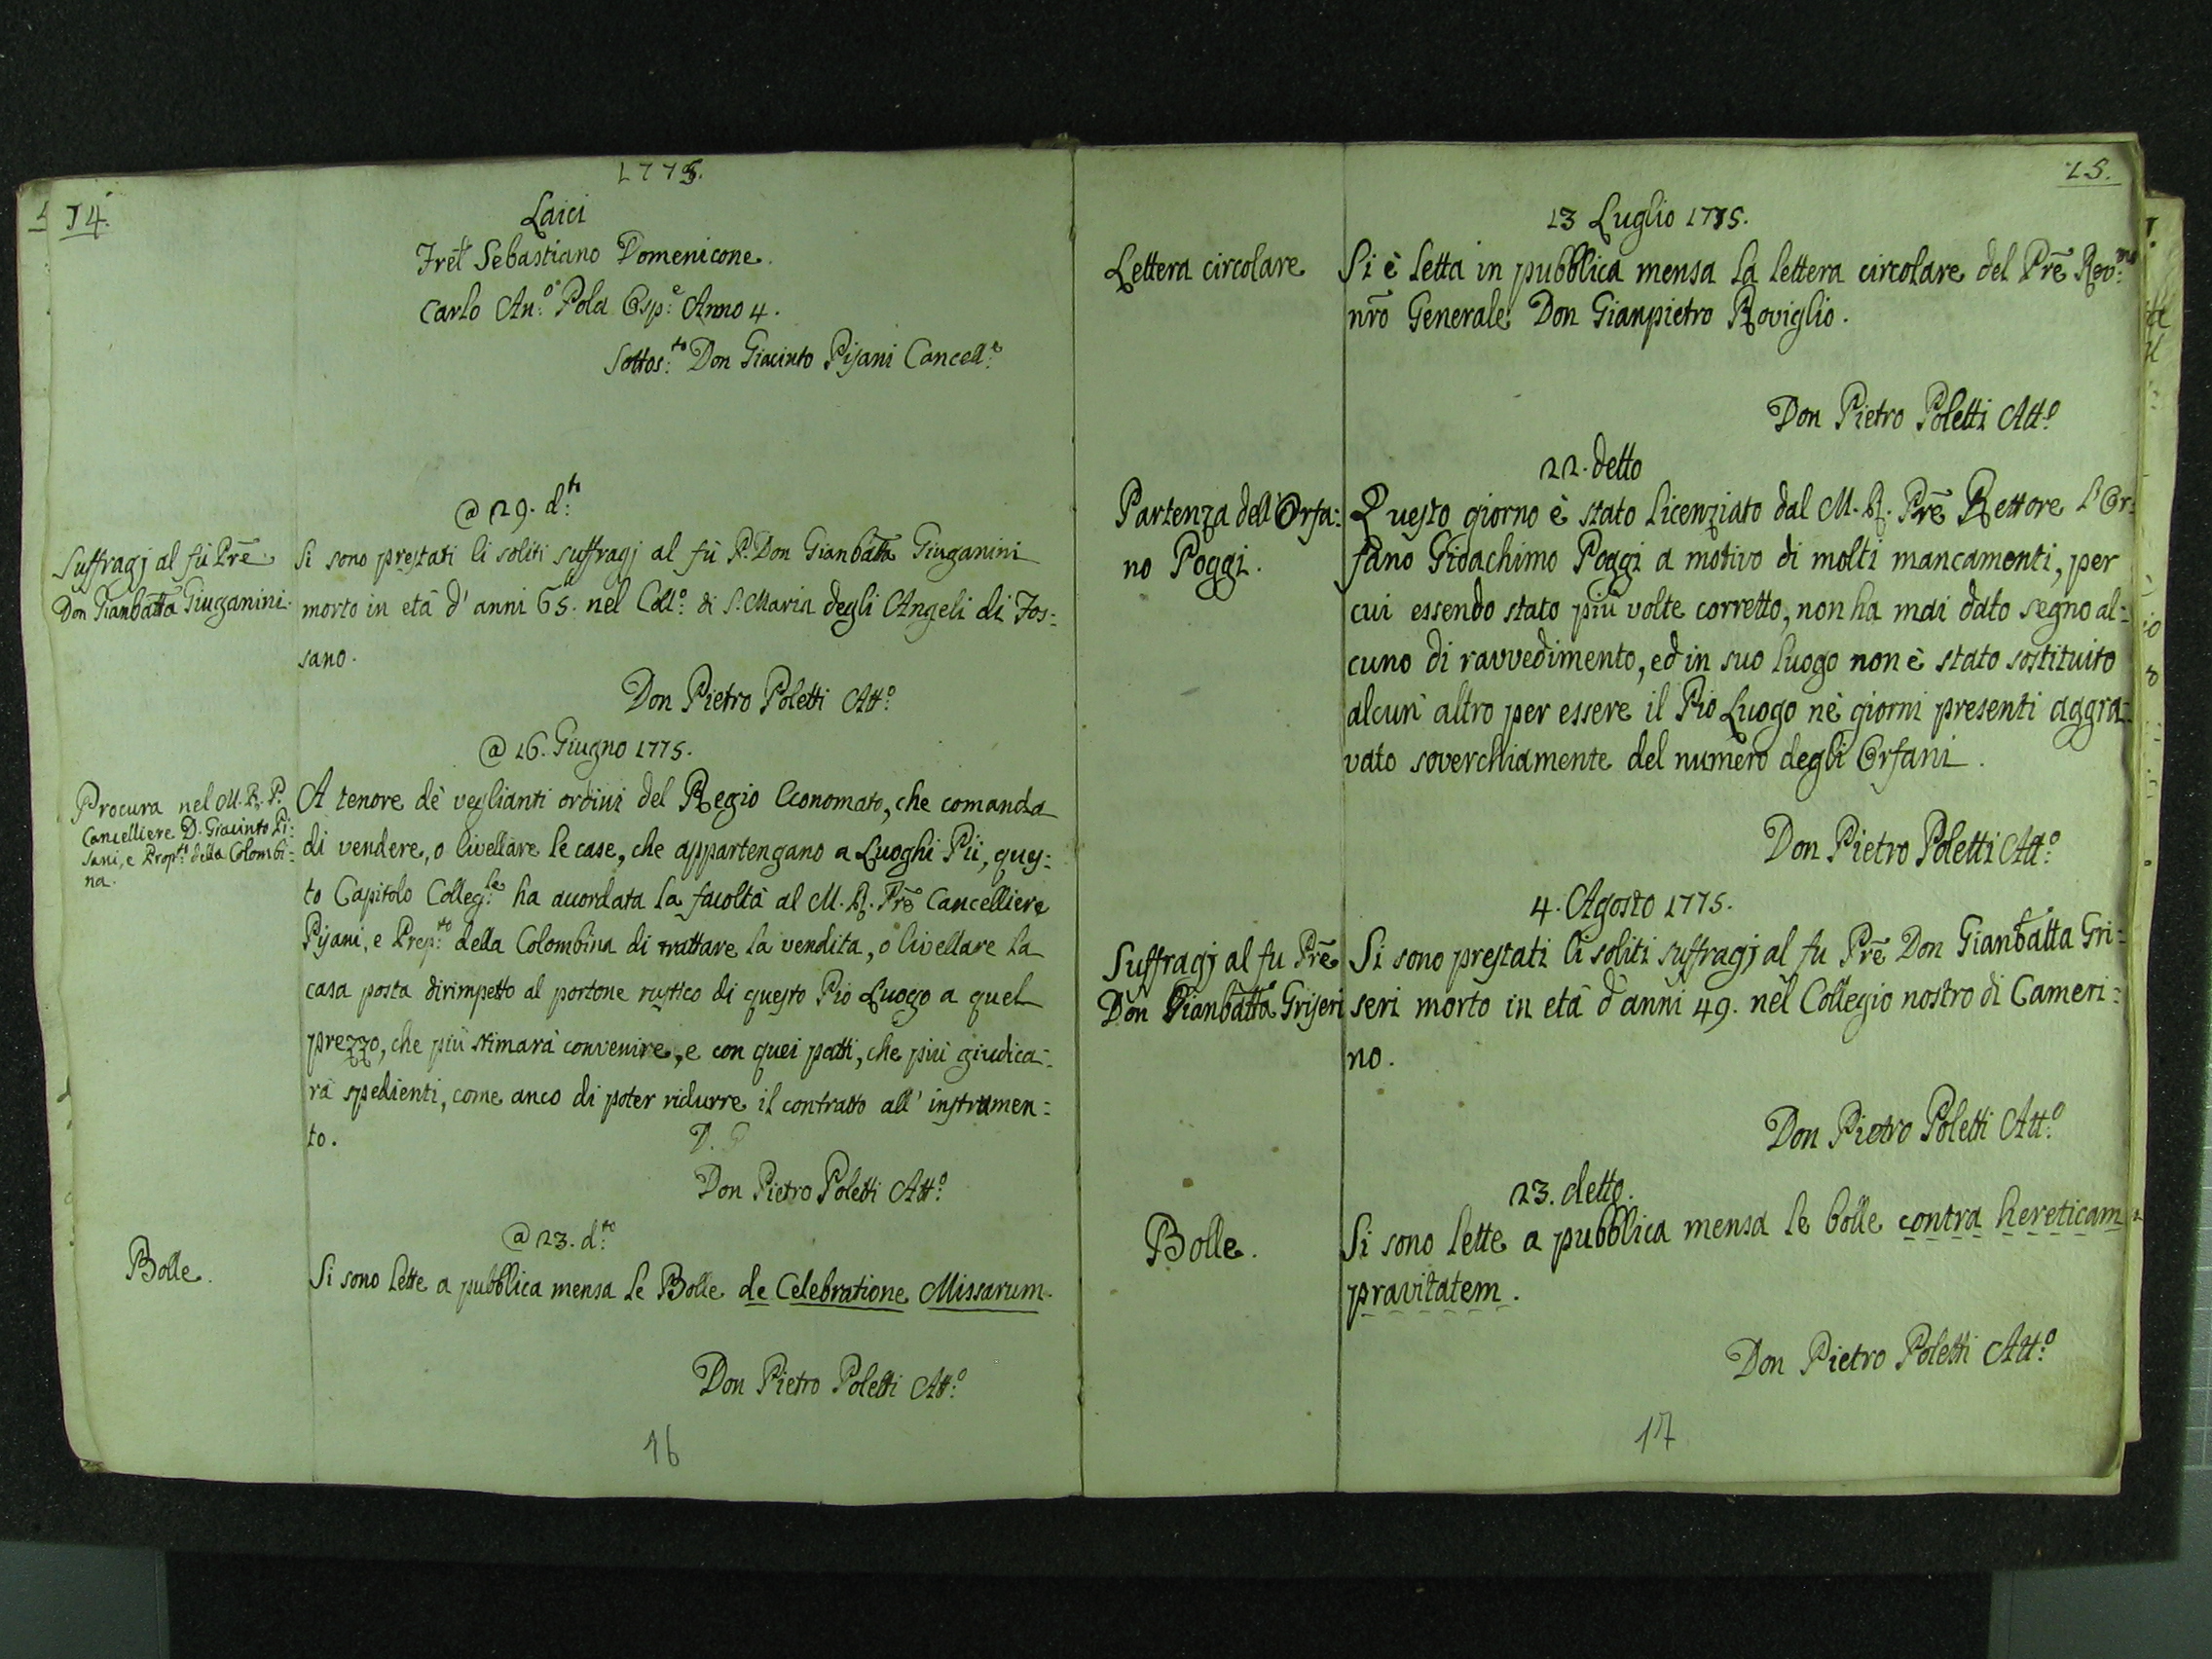 14.
1775.
Laici
Frēl Sebastiano Domenicone.
Carlo An:º Pola Osp:e Anno 4.
Sottos:to Don Giacinto Pisani Cancell:e
@ 29. d:to
Suffragj al fù Prē
Don Gianbattā Giuganini.
Si sono prestati li soliti suffragj al fù P. Don Gianbattā Giuganini
morto in età d'anni 65. nel Coll:º di S. Maria degli Angeli di Fos:
sano.
Don Pietro Poletti Att:º
@ 16. Giugno 1775.
Procura nel M. R. P.
Cancelliere D. Giacinto Pi:
sani, e Prop:to della Colombi:
na.
A tenore dè veglianti ordini del Regio Economato, che comanda
di vendere, o livellare le case, che appartengano a Luoghi Pii, ques:
to Capitolo Colleg:le ha accordata la facoltà al M. R. Prē Cancelliere
Pisani, e Prep:to della Colombina di trattare la vendita, o livellare la
casa posta dirimpetto al portone rustico di questo Pio Luogo a quel
prezzo, che più stimarà convenire, e con quei patti, che più giudica:
rà spedienti, come anco di poter ridurre il contratto all' instrumen:
to.
D. P
Don Pietro Poletti Att:º
@ 23. d:to
Bolle.
Si sono lette a pubblica mensa le Bolle de Celebratione Missarum.
Don Pietro Poletti Att:º
16
15.
13 Luglio 1775.
Lettera circolare
Si è letta in pubblica mensa la lettera circolare del Prē Rev:mo
nrō Generale Don Gianpietro Roviglio.
Don Pietro Poletti Att:º
22. detto
Partenza dell'Orfa:
no Poggi.
Questo giorno è stato licenziato dal M. R. Prē Rettore l'Or:
fano Gioachimo Poggi a motivo di molti mancamenti, per
cui essendo stato più volte corretto, non ha mai dato segno al:
cuno di ravvedimento, ed in suo luogo non è stato sostituito
alcun' altro per essere il Pio Luogo nè giorni presenti aggra:
vato soverchiamente del numero degli Orfani.
Don Pietro Poletti Att:º
4. Agosto 1775.
Suffragj al fu Prē
Don Gianbattā Griseri
Si sono prestati li soliti suffragj al fu Prē Don Gianbattā Gri:
seri morto in età d'anni 49. nel Collegio nostro di Cameri:
no.
Don Pietro Poletti Att:º
23. detto.
Bolle.
Si sono lette a pubblica mensa le bolle contra hereticam
pravitatem.
Don Pietro Poletti Att:º
17